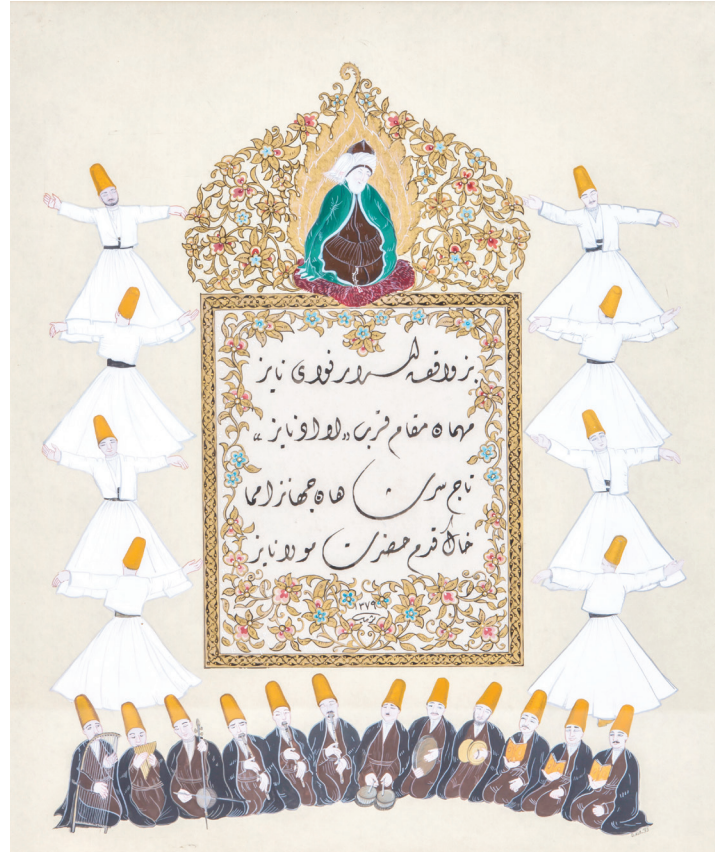 بز واقف اسرار نوای نایز
مهمان مقام قرب „او ادنایز“
تاج سر شاهان جهانز اما
خاک قدم حضرت مولانایز
١٣٧٩